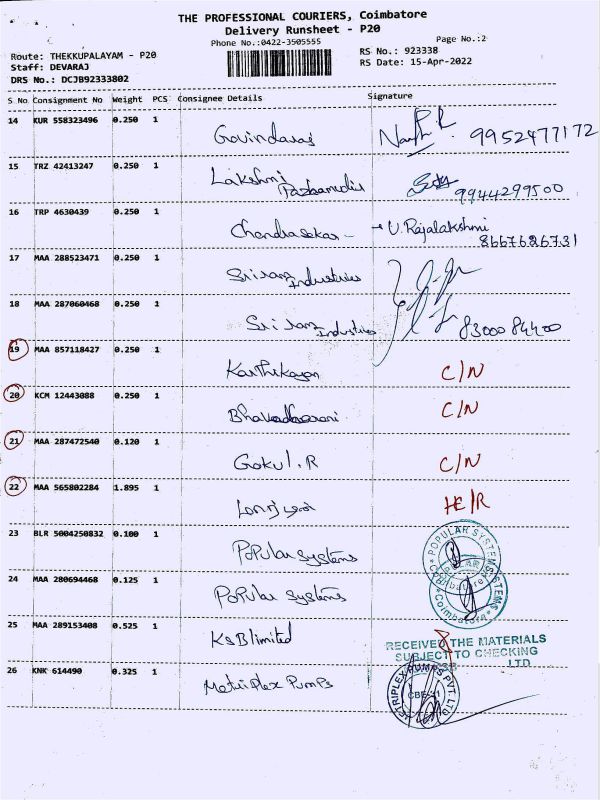 THE PROFESSIONAL COURIERS, Coimbatore
Delivery Runsheet - P20
Phone No.:0422-3505555
Page No.:2
Route: THEKKUPALAYAM - P20
RS No.: 923338
Staff: DEVARAJ
RS Date: 15-Apr-2022
DRS No.: DCJB92333802
S No Consignment No Weight PCS Consignee Details Signature
14 KUR 558323496 0.250 1 Govindaraj 9952477172
15 TRZ 42413247 0.250 1 Lakshmi
9944299500
16 TRP 4630439 0.250 1 Chandrasekar - U. Rajalakshmi
8667686731
17 MAA 288523471 0.250 1 Sriram Industries
18 MAA 287060468 0.250 1 Sriram Industries 83000 84400
19 MAA 857118427 0.250 1 Karthikayan C/N
20 KCM 12443088 0.250 1 C/N
21 MAA 287472540 0.120 1 Gokul.R C/N
22 MAA 565802284 1.895 1
23 BLR 5004250832 0.100 1 Popular Systems
POPULAR SYSTEMS
Coimbatore
24 MAA 280694468 0.125 1 Popular Systems
POPULAR SYSTEMS
Coimbatore
25 MAA 289153408 0.525 1 KSB limited
RECEIVED THE MATERIALS
SUBJECT TO CHECKING
LTD
26 KNK 614490 0.325 1 Metriplex Pumps
METRIPLEX PUMPS PVT. LTD
CBE-21